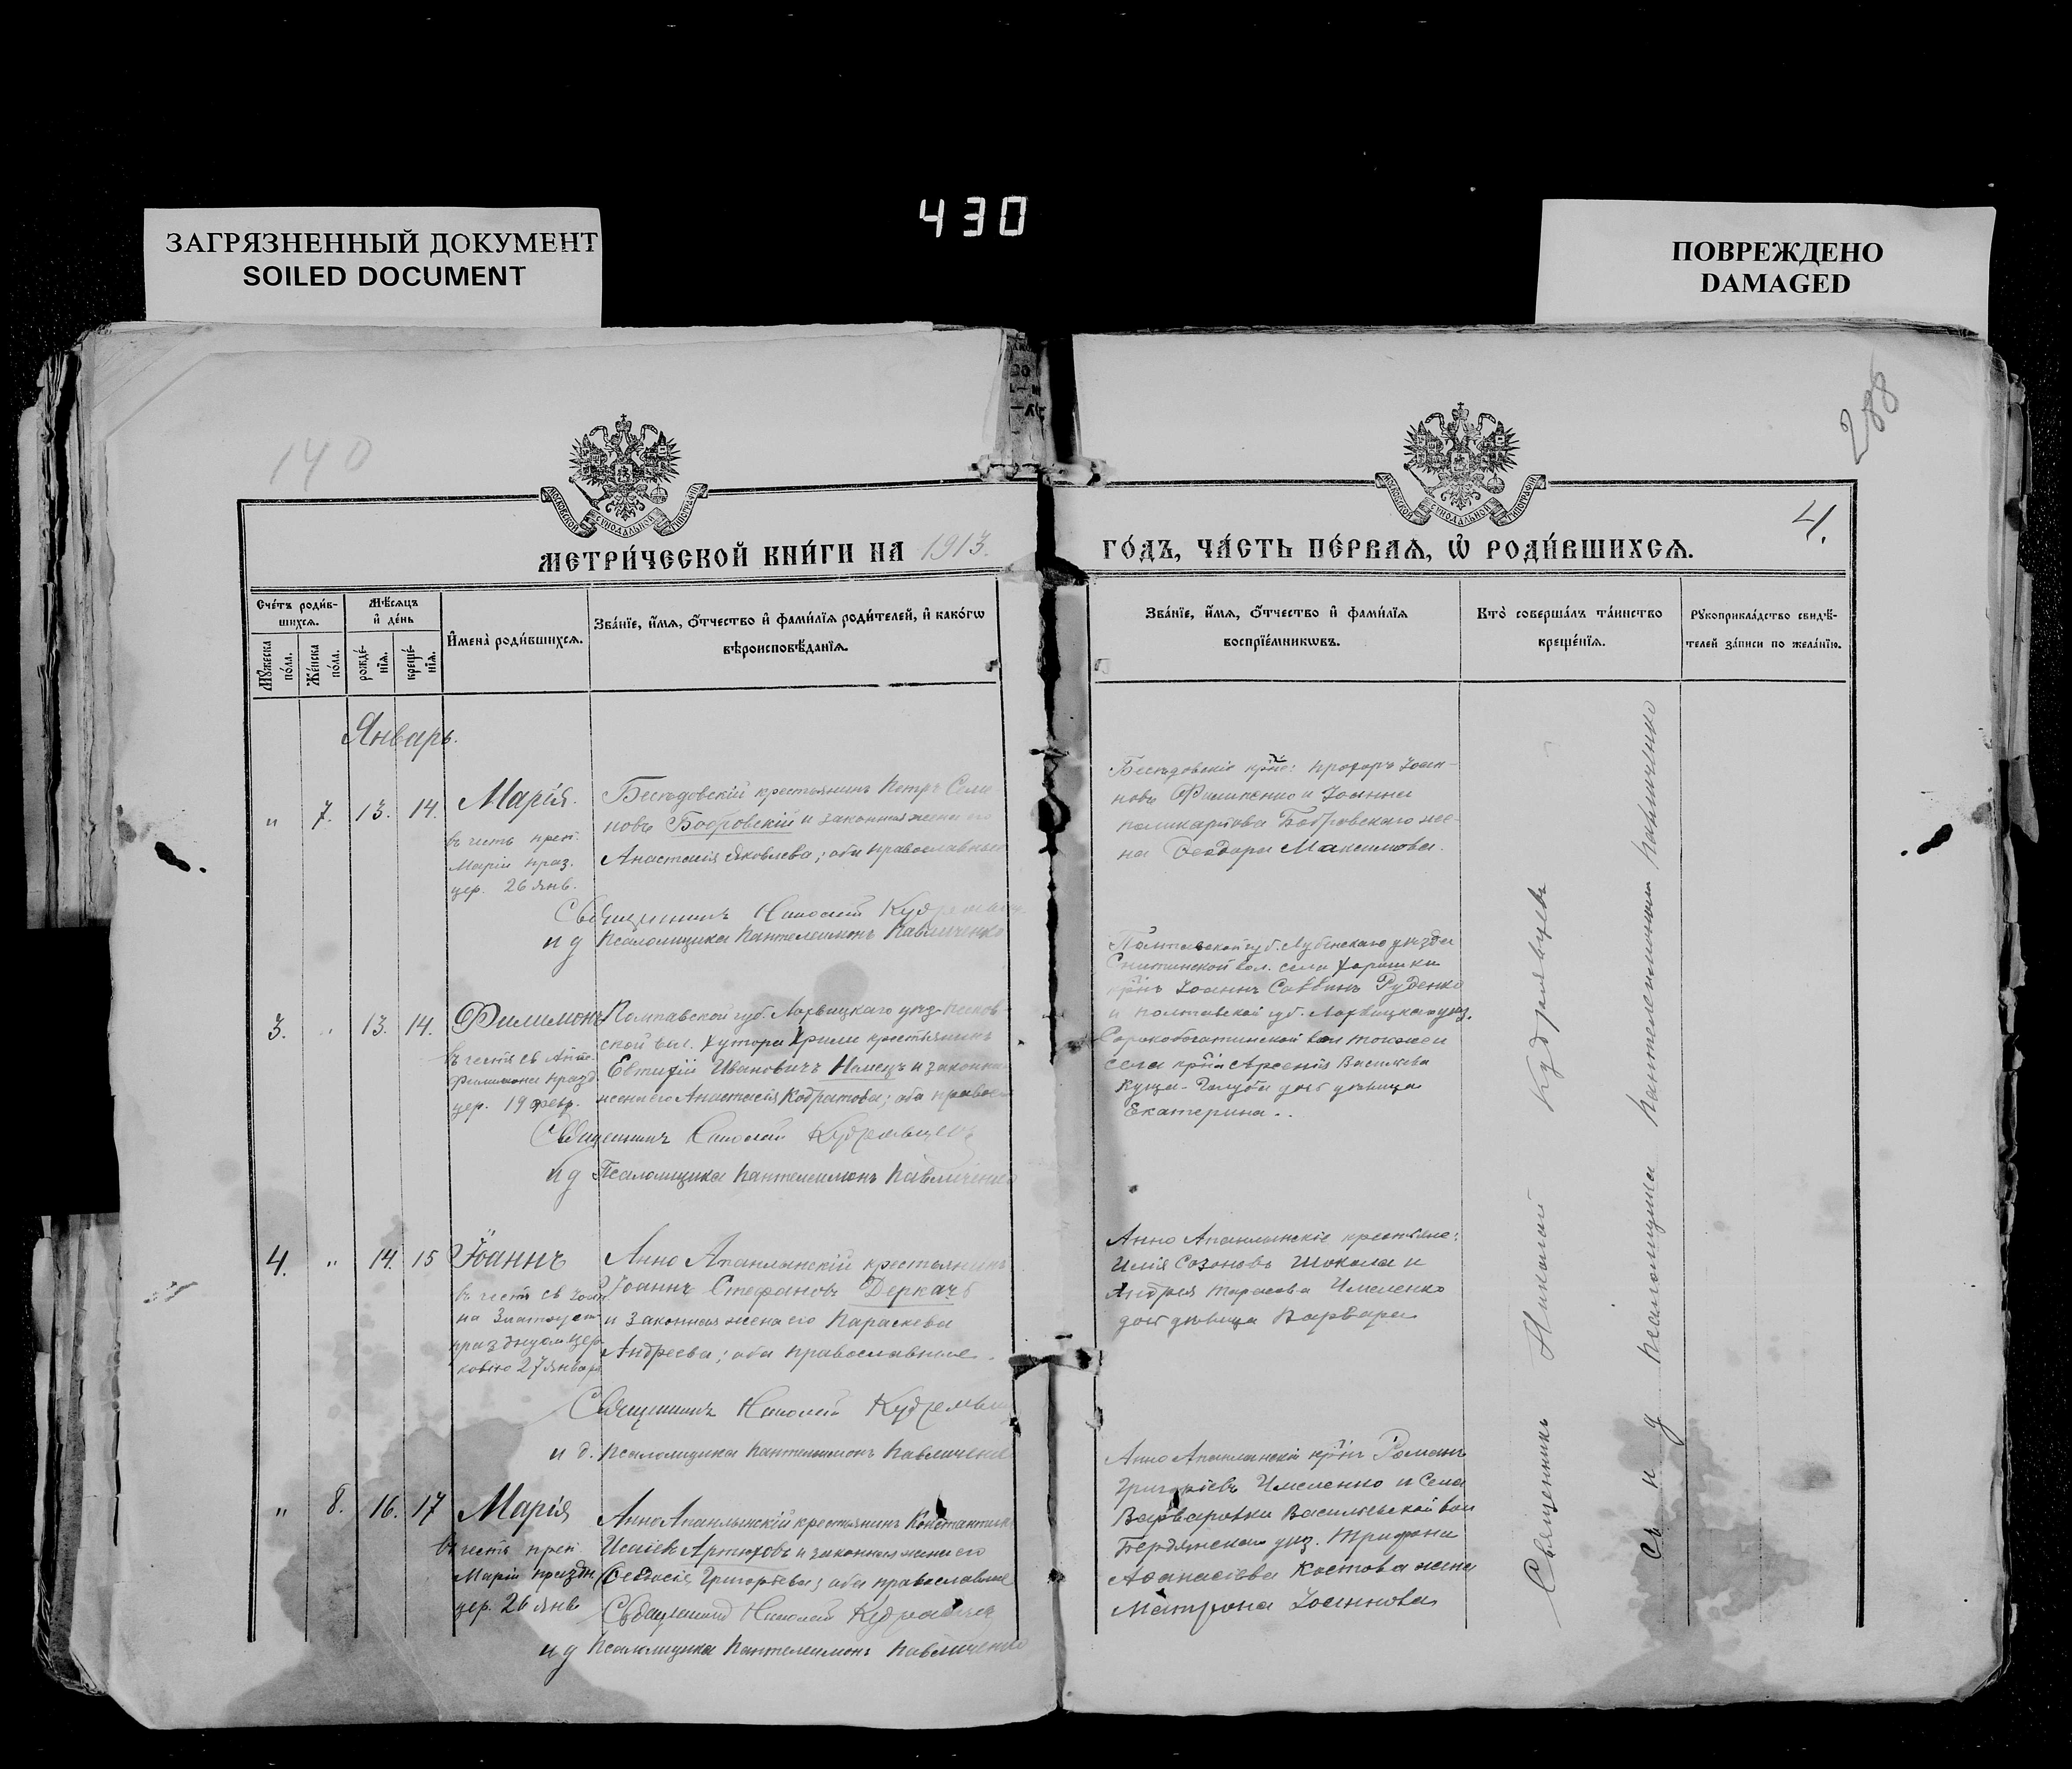 430
ЗАГРЯЗНЕННЫЙ ДОКУМЕНТ
SOILED DOCUMENT
ПОВРЕЖДЕНО
DAMAGED
140
288
4.
МОСКОВСКОЙ СѴНОДАЛЬНОЙ ТИПОГРАФІИ
МОСКОВСКОЙ СѴНОДАЛЬНОЙ ТИПОГРАФІИ
МЕТРИ́ЧЕСКОЙ КНИ́ГИ НА 1913.
ГО́ДЪ, ЧА́СТЬ ПЕ́РВАѦ, Ѡ҆ РОДИ́ВШИХСѦ.
Сче́тъ роди́в-
шихсѧ.
Мꙋ́жеска по́ла.
Же́нска по́ла.
Мѣ́сѧцъ
и҆ де́нь
рожде́-
нїѧ.
креще́-
нїѧ.
И҆мена̀ роди́вшихсѧ.
Зва́нїе, и҆́мѧ, ѻ҆́тчество и҆ фами́лїѧ роди́телей, и҆ како́гѡ
вѣроисповѣ́данїѧ.
Зва́нїе, и҆́мѧ, ѻ҆́тчество и҆ фами́лїѧ
воспрїе́мникѡвъ.
Кто̀ соверша́лъ та́инство
креще́нїѧ.
Рꙋкоприкла́дство свидѣ́-
телей за́писи по жела́нїю.
Январь.
" 7. 13. 14. Марія.
въ честь преп.
Маріи праз.
цер. 26 янв.
Бесѣдовскій крестьянинъ Петръ Семи
новъ Бобровскій и законная жена его
Анастасія Яковлева; оба православные
Священникъ Николай Кудрявцевъ
и д Псаломщика Пантелеимонъ Павличенко
Бесѣдовскіе кр-не: Прохоръ Іоан-
новъ Филипенко и Іоанна
Поликарпова Бобровскаго же-
на Ѳеодора Максимова.
3. " 13. 14. Филимонъ
въ честь св Апос.
Филимона празд.
цер. 19 февр.
Полтавской губ. Лохвицкаго уѣз Песков-
ской вол. хутора Хрили крестьянинъ
Евтихій Ивановичъ Немецъ и законная
жена его Анастасія Кодратова; оба правосл
Священникъ Николай Кудрявцевъ
и д Псаломщика Пантелеимонъ Павличенко
Полтавской губ. Лубенскаго уѣзда
Снитинской вол. села Хорошки
кр-нъ Іоаннъ Саввинъ Руденко
и Полтавской губ. Лохвицкаго уѣз.
Сорокобогатинской вол
села кр-на Арсенія Васильева
Куща-Голуба доч дѣвица
Екатерина..
4. " 14. 15 Іоаннъ
въ честь св Іоан
на Златоуст
празднуем цер-
ковію 27 января
Анно Апанлынскій крестьянинъ
Іоаннъ Стефановъ Деркачъ
и законная жена его Параскева
Андреева; оба православные.
Священникъ Николай Кудрявцевъ
и д. Псаломщика Пантелеимонъ Павличенко
Анно Апанлынскіе крестьяне:
Илія Созоновъ Шокола и
Андрея Тарасова Чмеленко
доч дѣвица Варвара
" 8. 16. 17 Марія
въ честь преп.
Маріи праздн
цер. 26 янв
Анно Апанлынскій крестьянинъ Константинъ
Исаіевъ Артюховъ и законная жена его
Ѳеодосія Григорьева; оба православные
Священникъ Николай Кудрявцевъ
и д Псаломщика Пантелеимонъ Павличенко
Анно Апанлынскій кр-нъ Романъ
Григоріевъ Чмеленко и села
Варваровки Васильевской вол
Бердянскаго уѣз. Трифона
Аѳанасіева Костова жена
Матрона Іоаннова
Священникъ Николай Кудрявцевъ
Съ и д Псаломщика Пантелеимономъ Павличенко